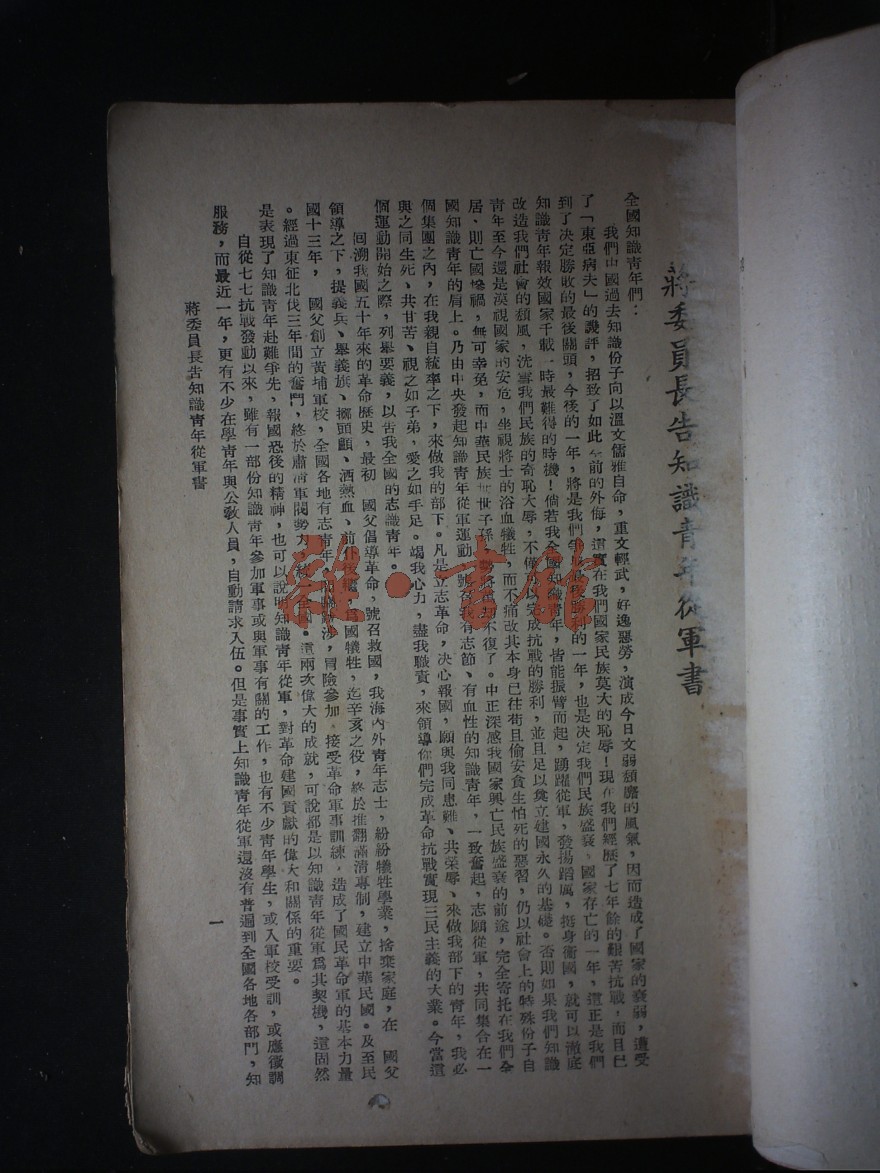 蔣委員長告知識青年從軍書
全國知識青年們：
我們中國過去知識份子向以溫文儒雅自命，重文輕武，好逸惡勞，演成今日文弱頹靡的風氣，因而造成了國家的衰弱，遭受
了「東亞病夫」的譏評，招致了如此空前的外侮，這實在我們國家民族莫大的恥辱！現在我們經歷了七年餘的艱苦抗戰，而且已
到了決定勝敗的最後關頭，今後的一年，將是我們爭取最後勝利的一年，也是決定我們民族盛衰，國家存亡的一年，這正是我們
知識青年報效國家千載一時最難得的時機！倘若我全國知識青年，皆能振臂而起，踴躍從軍，發揚蹈厲，挺身衞國，就可以澈底
改造我們社會的頹風，洗雪我們民族的奇恥大辱，不僅完成抗戰的勝利，並且足以奠立建國永久的基礎。否則如果我們知識
青年至今還是漠視國家的安危，坐視將士的浴血犧牲，而不痛改其本身已往苟且偷安貪生怕死的惡習，仍以社會上的特殊份子自
居、則亡國慘禍，無可幸免，而中華民族世世子孫將萬劫不復了。中正深感我國家興亡民族盛衰的前途，完全寄托在我們全
國知識青年的肩上。乃由中央發起知識青年從軍運動，號召我有志節、有血性的知識青年，一致奮起，志願從軍，共同集合在一
個集團之內，在我親自統率之下，來做我的部下。凡是立志革命，決心報國，願與我同患難、共榮辱、來做我部下的青年，我必
與之同生死、共甘苦、視之如子弟，愛之如手足。竭我心力，盡我職責，來領導你們完成革命抗戰實現三民主義的大業。今當這
個運動開始之際，列舉要義，以告我全國的志識青年。
回溯我國五十年來的革命歷史，最初　國父倡導革命，號召救國，我海內外青年志士，紛紛犧牲學業，捨棄家庭，在　國父
領導之下，提義兵、舉義旗、擲頭顱、洒熱血、前仆後繼，為國犧牲，迄辛亥之役，終於推翻滿清專制，建立中華民國。及至民
國十三年，　國父創立黃埔軍校，全國各地有志青年，跋涉，冒險參加，接受革命軍事訓練，造成了國民革命軍的基本力量
。經過東征北伐三年間的奮鬥，終於肅清軍閥勢力，統一全國。這兩次偉大的成就，可說都是以知識青年從軍為其契機，這固然
是表現了知識青年赴難爭先，報國恐後的精神，也可以說明知識青年從軍，對革命建國貢獻的偉大和關係的重要。
自從七七抗戰發動以來，雖有一部份知識青年參加軍事或與軍事有關的工作，也有不少青年學生，或入軍校受訓，或應徵調
服務，而最近一年，更有不少在學青年與公教人員，自動請求入伍。但是事實上知識青年從軍還沒有普遍到全國各地各部門，知
蔣委員長告知識青年從軍書
一